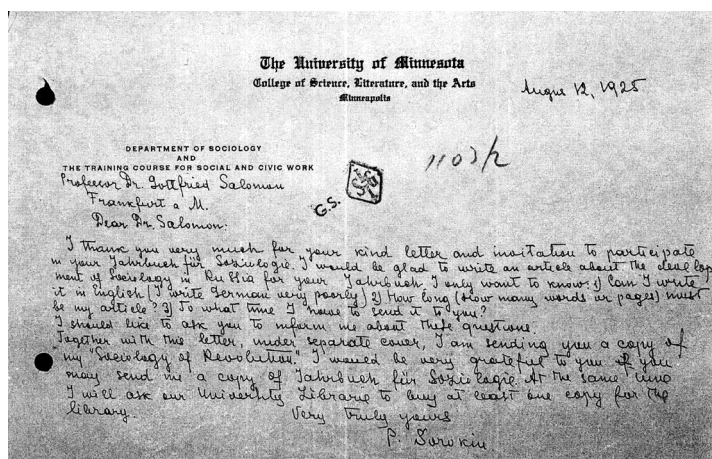 The University of Minnesota
College of Science, Literature, and the Arts
Minneapolis
August 12, 1925
DEPARTMENT OF SOCIOLOGY
AND
THE TRAINING COURSE FOR SOCIAL AND CIVIC WORK
1103/2
G.S.
Professor Dr. Gottfried Salomon
Frankfurt a M.
Dear Dr. Salomon:
I thank you very much for your kind letter and invitation to participate
in your Jahrbuch für Soziologie. I would be glad to write an article about the develop
ment of Sociology in Russia for your Jahrbuch I only want to know: 1) Can I write
it in English (I write German very poorly) 2) How long (how many words or pages) must
be my article? 3) To what time I have to send it to you?
I should like to ask you to inform me about these questions.
Together with this letter, under separate cover, I am sending you a copy of
my "Sociology of Revolution". I would be very grateful to you if you
may send me a copy of Jahrbuch für Soziologie. At the same time
I will ask our University Library to buy at least one copy for the
library.
Very truly yours
P. Sorokin.